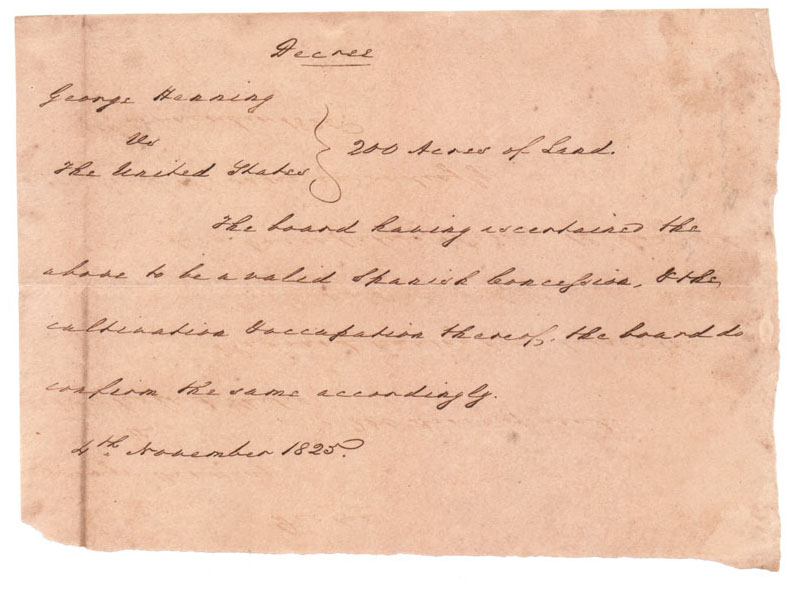 Decree
George Hanning
Vs
The United States } 200 Acres of Land.
The board having ascertained the
above to be a valid Spanish Concession, & the
cultivation & occupation thereof, the board do
confirm the same accordingly.
4th November 1825.